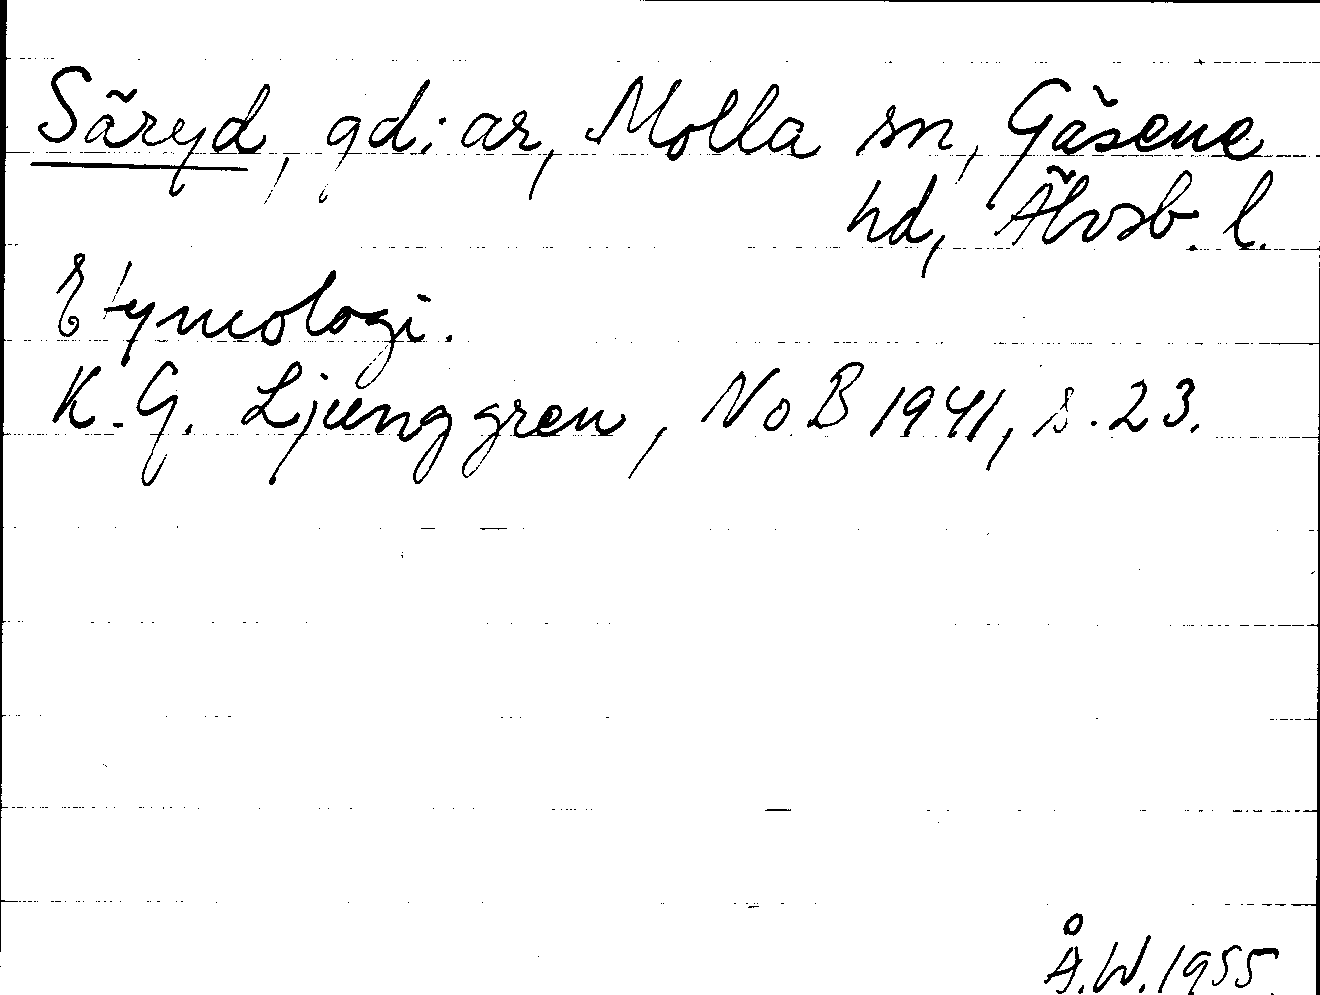 Säryd, gd:ar, Molla sn, Gäsene
hd, Älvsb. l.
Etymologi.
K. G. Ljunggren, NoB 1941, s. 23.
Å.W. 1955